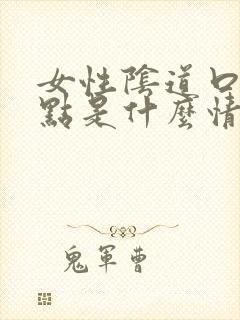 女性陰道口
點是什麼情
鬼軍曹